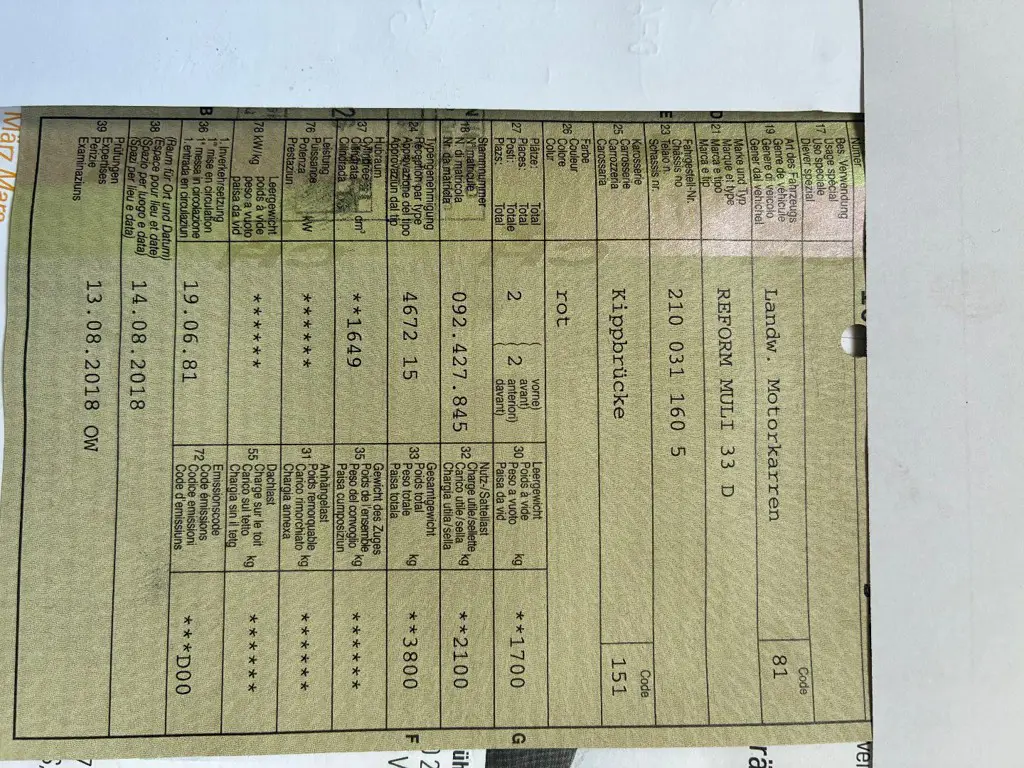 17 Bes. Verwendung
Usage spécial
Uso speciale
Diever spezial
19 Art des Fahrzeugs
Genre de véhicule
Genere di veicolo
Gener dal vehichel
Landw. Motorkarren
Code
81
D
21 Marke und Typ
Marque et type
Marca e tipo
Marca e tip
REFORM MULI 33 D
E
23 Fahrgestell-Nr.
Châssis no
Telaio n.
Schassis nr.
210 031 160 5
25 Karosserie
Carrosserie
Carrozzeria
Carossaria
Kippbrücke
Code
151
26 Farbe
Couleur
Colore
Colur
rot
27 Plätze: Total
Places: Total
Posti: Totale
Plazs: Total
2
2
vorne)
avant)
anteriori)
davant)
30 Leergewicht
Poids à vide
Peso a vuoto
Paisa da vid
kg
**1700
G
Stammnummer
N° matricule
N. di matricola
Nr. da matricla
092.427.845
32 Nutz-/Sattellast
Charge utile/sellette
Carico utile/sella
Chargia utila/sella
kg
**2100
24 Typengenehmigung
Réception par type
Approvazione del tipo
Approvaziun da tip
4672 15
33 Gesamtgewicht
Poids total
Peso totale
Paisa totala
kg
**3800
F
37 Hubraum
Cylindrée
Cilindrata
Cilindrada
cm³
**1649
35 Gewicht des Zuges
Poids de l'ensemble
Peso del convoglio
Paisa cumposiziun
kg
******
76 Leistung
Puissance
Potenza
Prestaziun
kW
******
31 Anhängelast
Poids remorquable
Carico rimorchiato
Chargia annexa
kg
******
78 kW/kg
Leergewicht
poids à vide
peso a vuoto
paisa da vid
******
55 Dachlast
Charge sur le toit
Carico sul tetto
Chargia sin il tetg
kg
******
B
36 1. Inverkehrsetzung
1re mise en circulation
1a messa in circolazione
1. entrada en circulaziun
19.06.81
72 Emissionscode
Code émissions
Codice emissioni
Code d'emissiuns
***D00
38 (Raum für Ort und Datum)
(Espace pour lieu et date)
(Spazio per luogo e data)
(Spazi per lieu e data)
14.08.2018
39 Prüfungen
Expertises
Perizie
Examinaziuns
13.08.2018 OW
März Mars